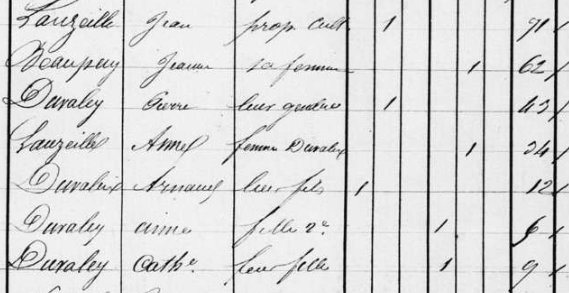 Lauzeille Jean prop cult 1 71
Beaupuy Jeanne sa femme 1 62
Duraley Pierre leur gendre 1 43
Lauzeille Anne femme Duraley 1 34
Duraleix Arnaud leur fils 1 12
Duraley anne fille 2e 1 6
Duraley Cathe leur fille 1 9